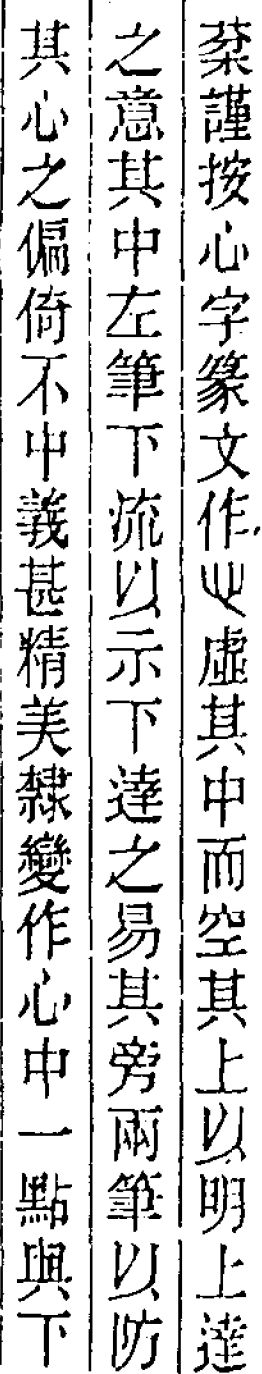 棻謹按心字篆文作𢖩虛其中而空其上以明上達
之意其中左筆下流以示下達之易其旁兩筆以防
其心之偏倚不中義甚精美隸變作心中一點與下